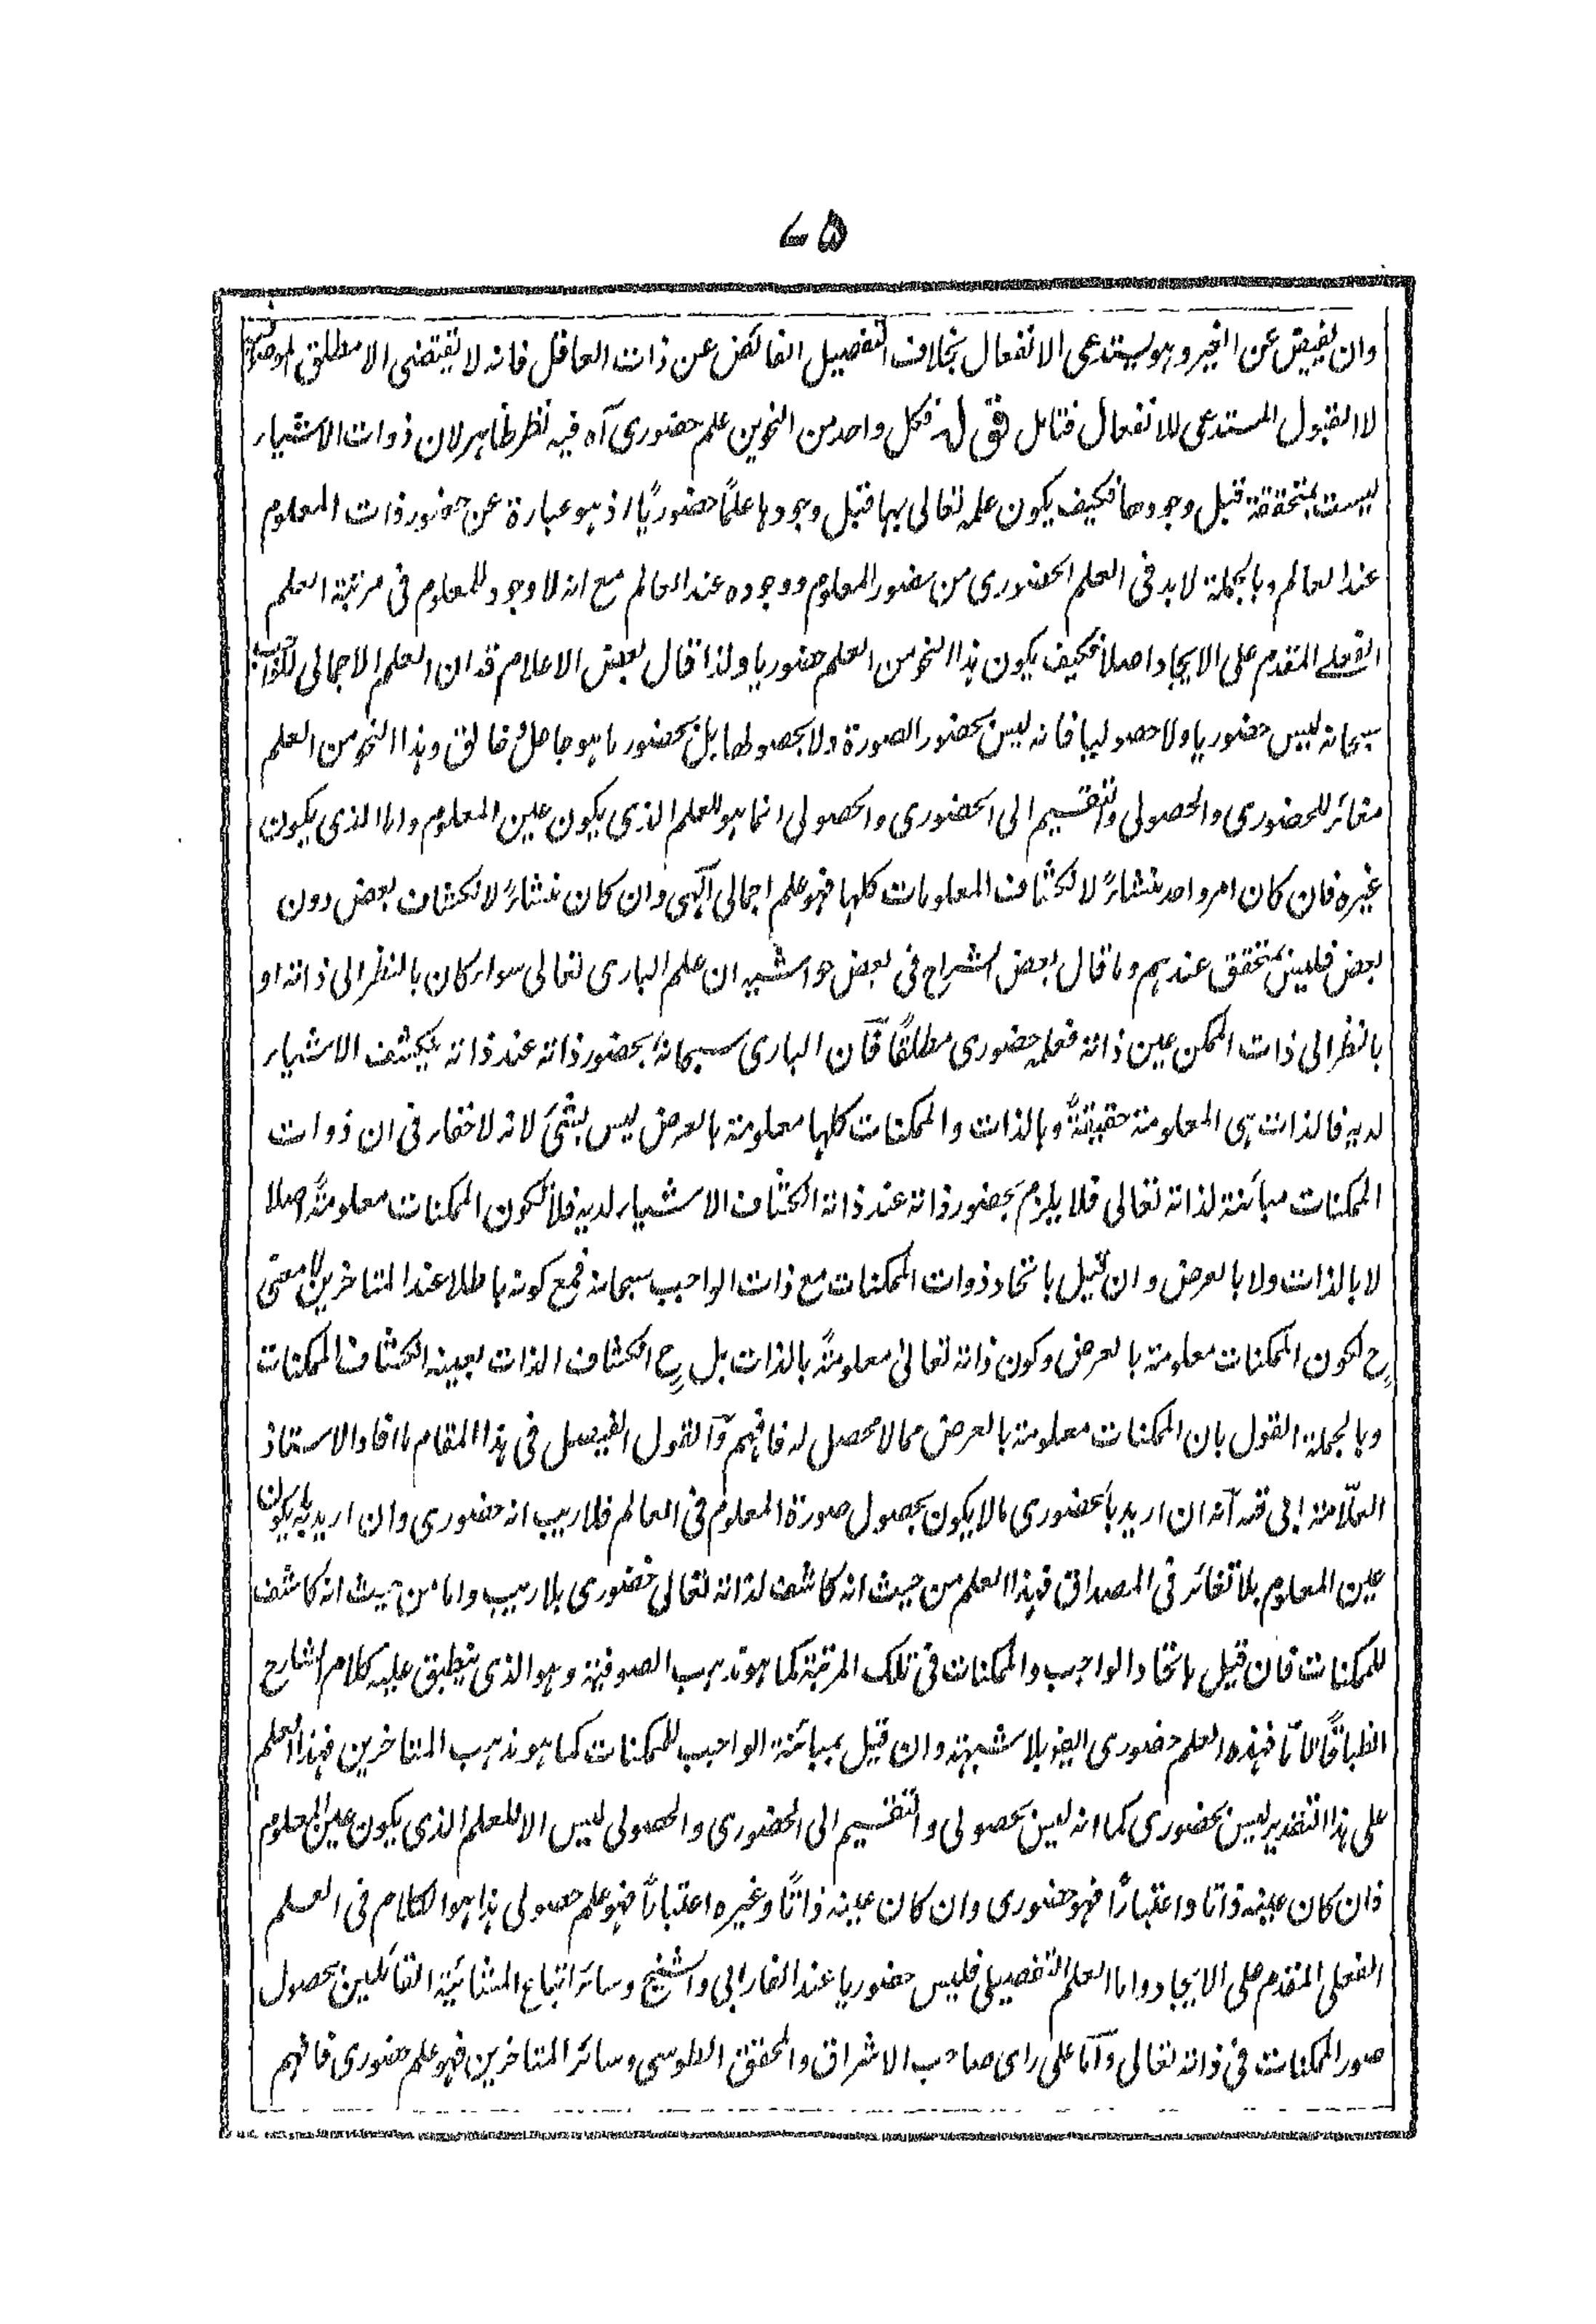 ۷۵
وان یفیض عن الغیر وہو یستدعی الانفعال بخلاف التفصیل الفائض عن ذات العاقل فانہ لا یقتضی الا مطلق الموصوفیۃ
لا القبول المستدعی للانفعال فتامل قولہ فکل واحد من النحوین علم حضوری آہ فیہ نظر ظاہر لان ذوات الاشیاء
لیست بمتحققۃ قبل وجودھا فکیف یکون علمہ تعالی بہا قبل وجودہا علمًا حضوریًا اذ ہو عبارۃ عن حضور ذات المعلوم
عند العالم وبالجملۃ لابد فی العلم الحضوری من حضور المعلوم ووجودہ عند العالم مع انہ لا وجود للمعلوم فی مرتبۃ العلم
الفعلے المتقدم علی الایجاد اصلا فکیف یکون ہذا النحو من العلم حضوریا ولذا قال بعض الاعلام قد ان العلم الاجمالی للواجب
سبحانہ لیس حضوریا ولا حصولیا فانہ لیس بحضور الصورۃ ولا بحصولھا بل بحضور ما ہو جاعل و خالق وہذا النحو من العلم
مغائر للحضوری والحصولی والتقسیم الی الحضوری والحصولی انما ہو للعلم الذی یکون عین المعلوم واما الذی یکون
غیرہ فان کان امر واحد منشاءً لانکشاف المعلومات کلہا فہو علم اجمالی آلہی وان کان منشاءً لانکشاف بعض دون
بعض فلیس بمتحقق عندہم وما قال بعض الشراح فی بعض حواشیہ ان علم الباری تعالی سواء کان بالنظر الی ذاتہ او
بالنظر الی ذات الممکن عین ذاتہ فعلمہ حضوری مطلقًا فآن الباری سبحانہ بحضور ذاتہ عند ذاتہ ینکشف الاشیاء
لدیہ فالذات ہی المعلومۃ حقیقۃً وبالذات والممکنات کلہا معلومۃ بالعرض لیس بشیٔ لانہ لا خفاء فی ان ذوات
الممکنات مبائنۃ لذاتہ تعالی فلا یلزم بحضور ذاتہ عند ذاتہ انکشاف الاشیاء لدیہ فلا تکون الممکنات معلومۃً اصلا
لا بالذات ولا بالعرض وان قیل باتحاد ذوات الممکنات مع ذات الواجب سبحانہ فمع کونہ باطلا عند المتاخرین لا معنی
ح لکون الممکنات معلومۃ بالعرض وکون ذاتہ تعالیٰ معلومۃً بالذات بل ح انکشاف الذات بعینہ انکشاف الممکنات
وبالجملۃ القول بان الممکنات معلومۃ بالعرض مما لا محصل لہ فافہم وآلقول الفیصل فی ہذا المقام ما افاد الاستاذ
العلّامۃ ابی قدہ آنہ ان ارید بالحضوری ما لا یکون بحصول صورۃ المعلوم فی العالم فلا ریب انہ حضوری وان ارید بہ ما یکون
عین المعلوم بلا تغائر فی المصداق فہذا العلم من حیث انہ کاشف لذاتہ تعالی حضوری بلا ریب واما من حیث انہ کاشف
للممکنات فان قیل باتحاد الواجب والممکنات فی تلک المرتبۃ کما ہو مذہب الصوفیۃ وہو الذی ینطبق علیہ کلام الشارح
انطباقًا تامًا فہذہ العلم حضوری ایضا بلا شبہۃ وان قیل بمبائنۃ الواجب للممکنات کما ہو مذہب المتاخرین فہذا العلم
علی ہذا التقدیر لیس بحضوری کما انہ لیس بحصولی والتقسیم الی الحضوری والحصولی لیس الا للعلم الذی یکون عین المعلوم
فان کان عینہ ذاتا واعتبارًا فہو حضوری وان کان عینہ ذاتًا وغیرہ اعتبارًا فہو علم حصولی ہذا ہو الکلام فی العلم
الفعلی المتقدم علی الایجاد واما العلم التفصیلی فلیس حضوریا عند الفارابی والشیخ وسائر اتباع المشائیۃ القائلین بحصول
صور الممکنات فی ذاتہ تعالی وآما علی رای صاحب الاشراق والمحقق الطوسی وسائر المتاخرین فہو علم حضوری فافہم